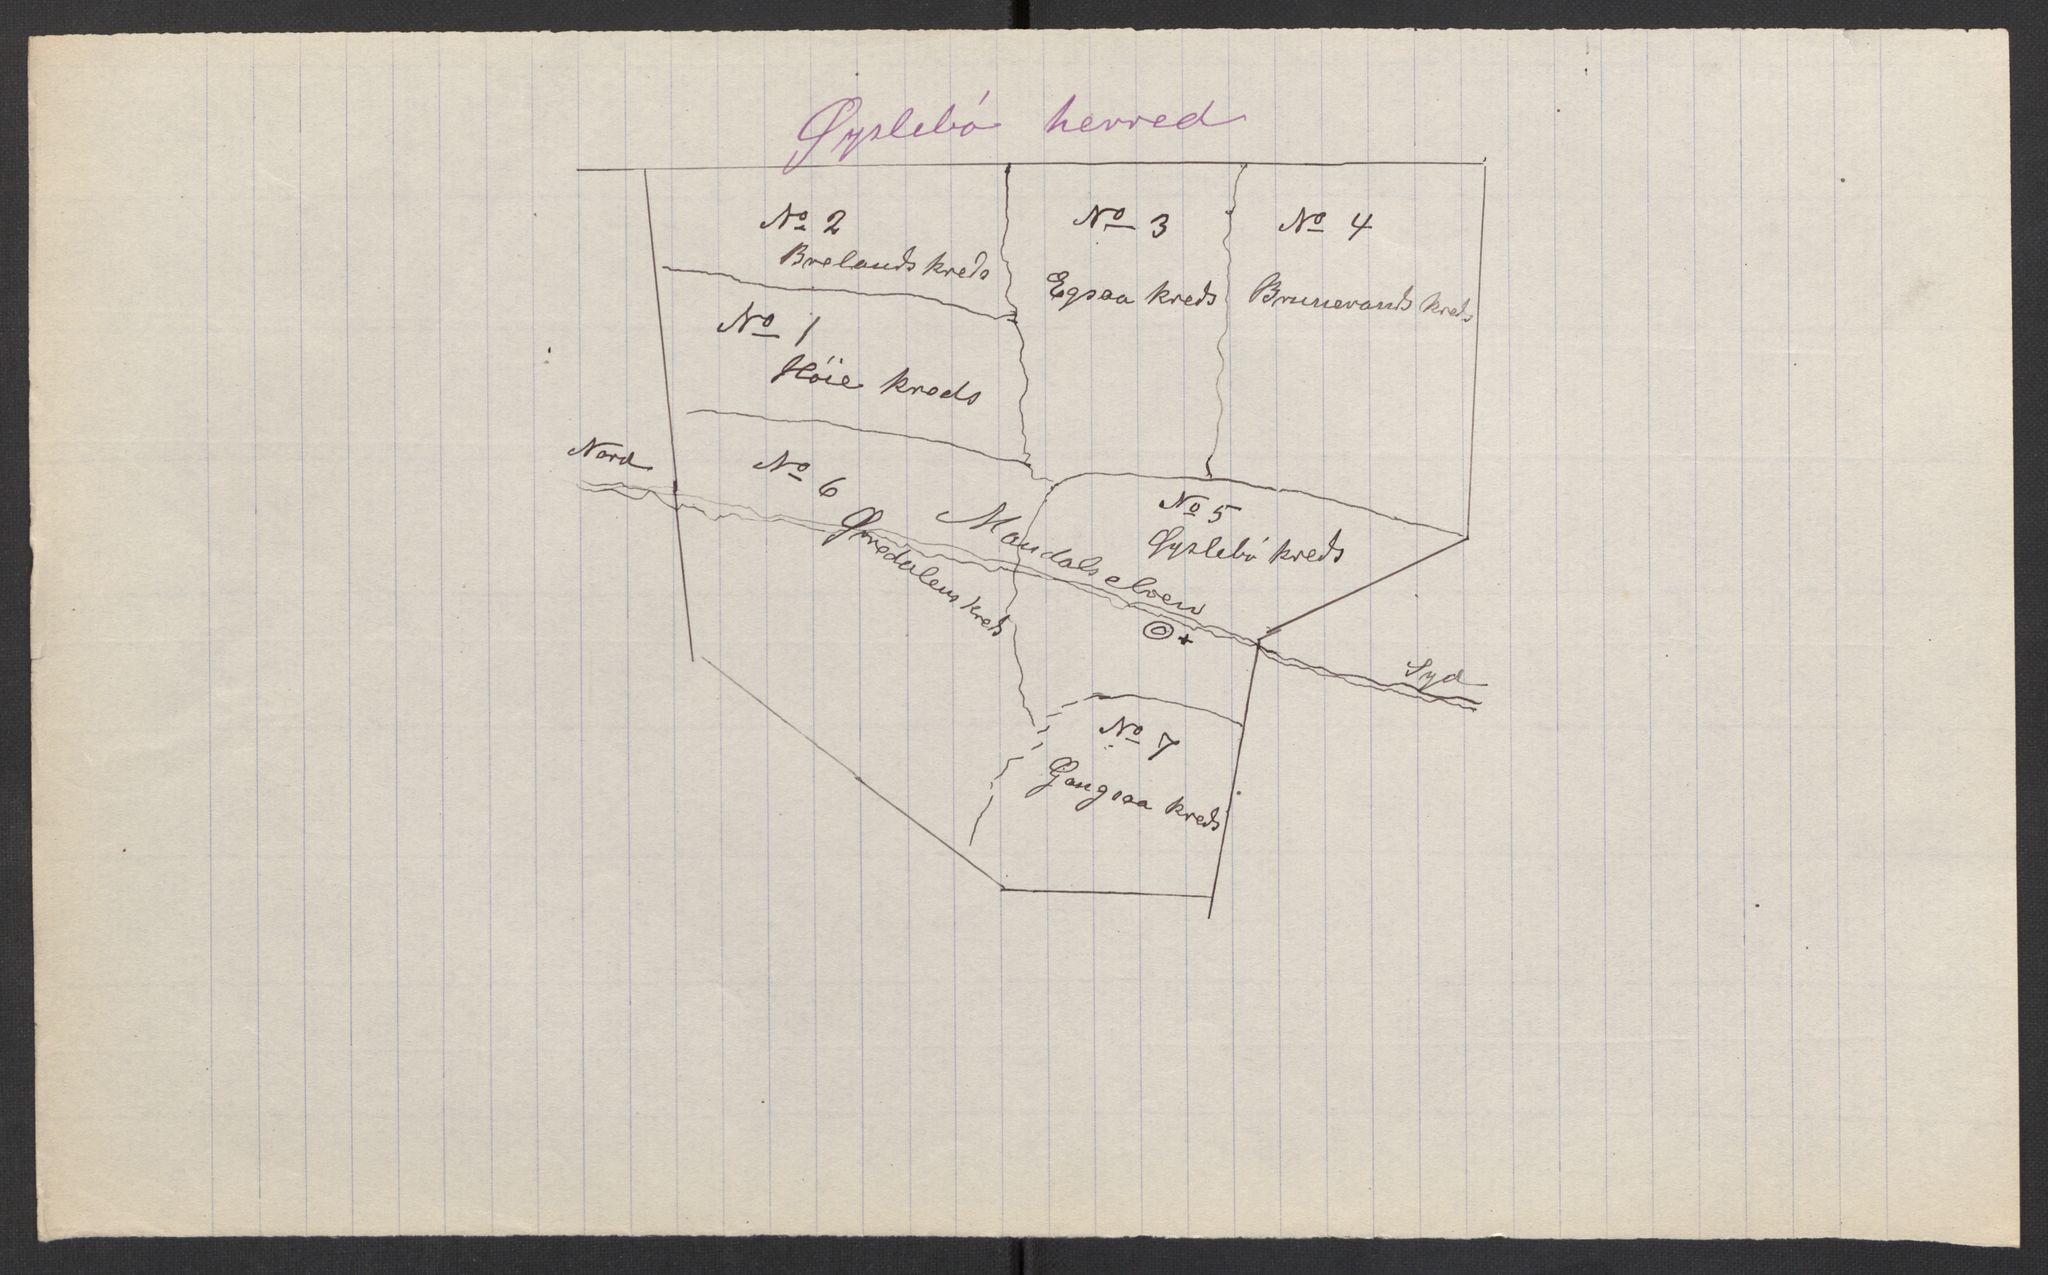 Øyslebó herred
No 2
Brelands kreds
No 3
Egsaa kreds
No 4
Brunevands kreds
No 1
Hóie kreds
Nord
No 6
Øvredalens kreds
Mandalselven
No 5
Øyslebó kreds
Syd
No 7
Gangsaa kreds